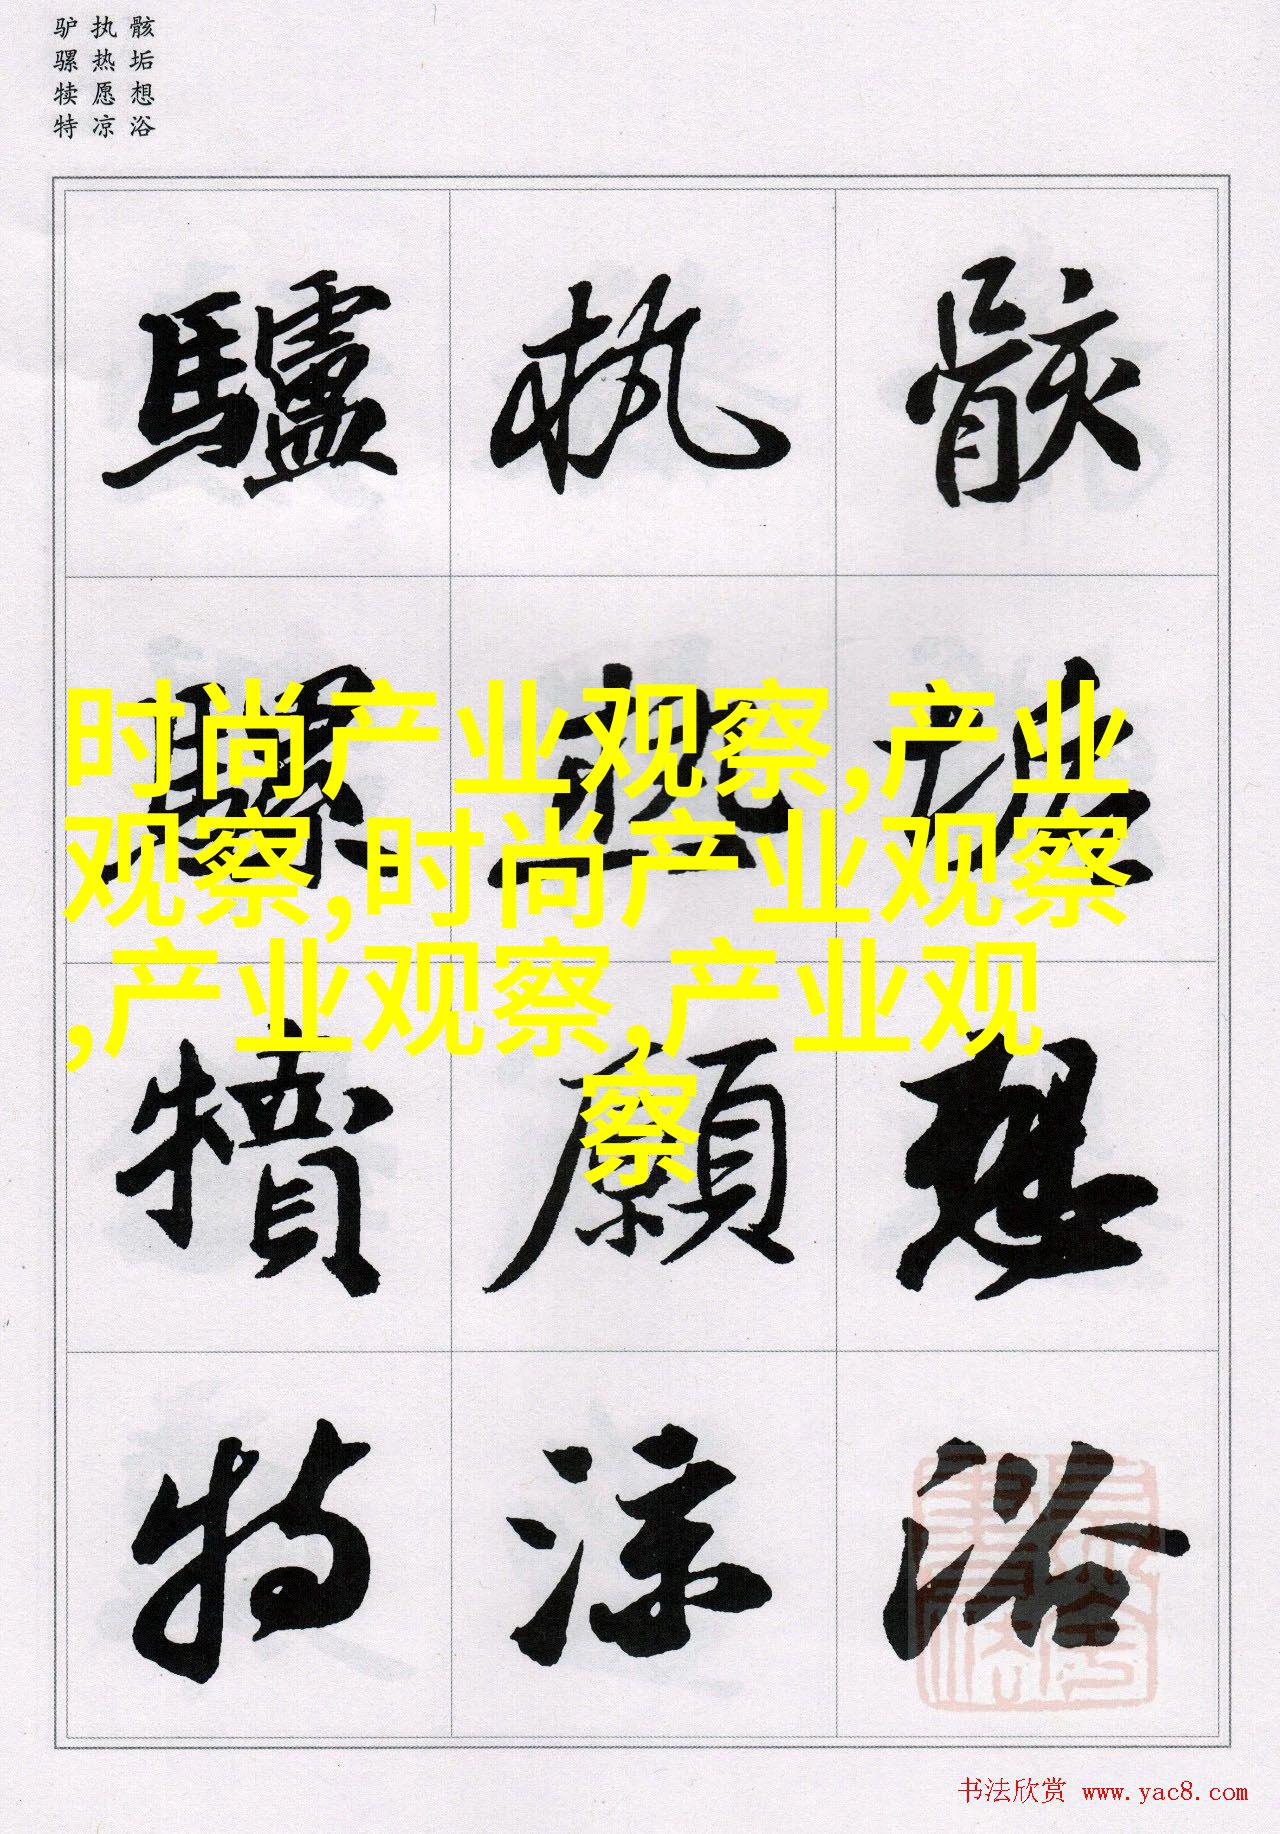 骸垢想浴
执热愿凉
驴骡犊特
骸垢想浴
執熱願涼
驢騾犢特
时尚产业观察,产业
观察,时尚产业观察
,产业观察,产业观
察
书法欣赏 www.yac8.com